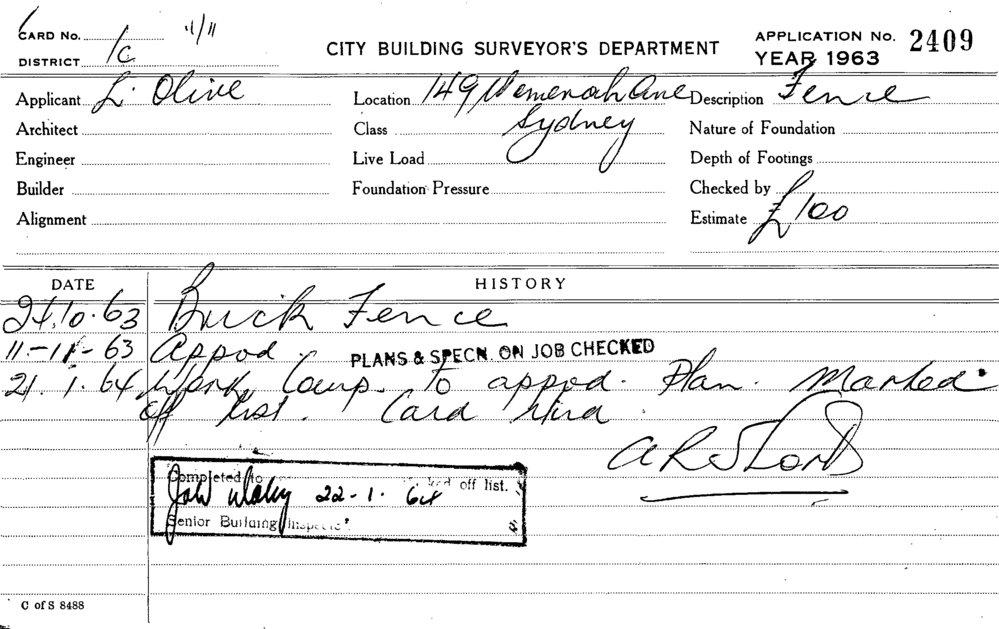 CARD No. 11/11
DISTRICT 1c
CITY BUILDING SURVEYOR'S DEPARTMENT
APPLICATION No. 2409
YEAR 1963
Applicant L. Olive
Location 149 Ave Sydney
Description Fence
Architect
Class
Nature of Foundation
Engineer
Live Load
Depth of Footings
Builder
Foundation Pressure
Checked by
Alignment
Estimate £100
DATE HISTORY
24.10.63 Brick Fence
11-11-63 Appvd. PLANS & SPECN. ON JOB CHECKED
21.1.64 Work Comp. to appvd. Plan. Marked
off list. Card
Completed to off list.
22-1.64
Senior Building Inspector
C of S 8488